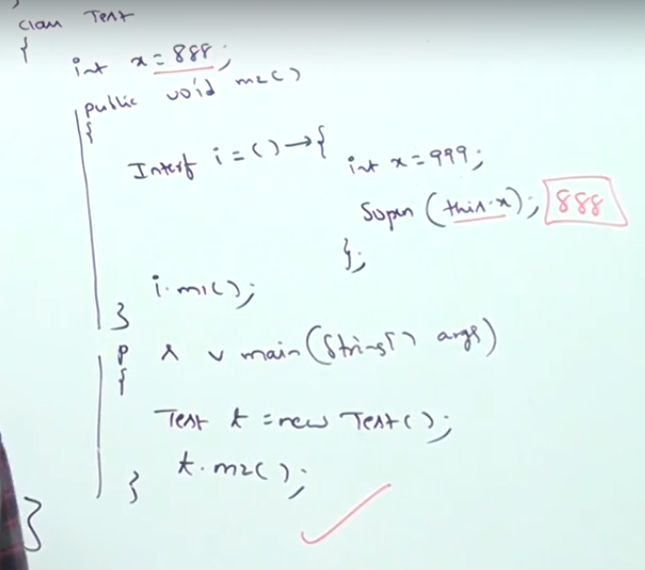 class Test
{
int x = 888;
public void m2()
{
Interf i = () → {
int x = 999;
Sopln (this.x); 888
};
i.m1();
}
p s v main (String[] args)
{
Test t = new Test();
t.m2();
}
}